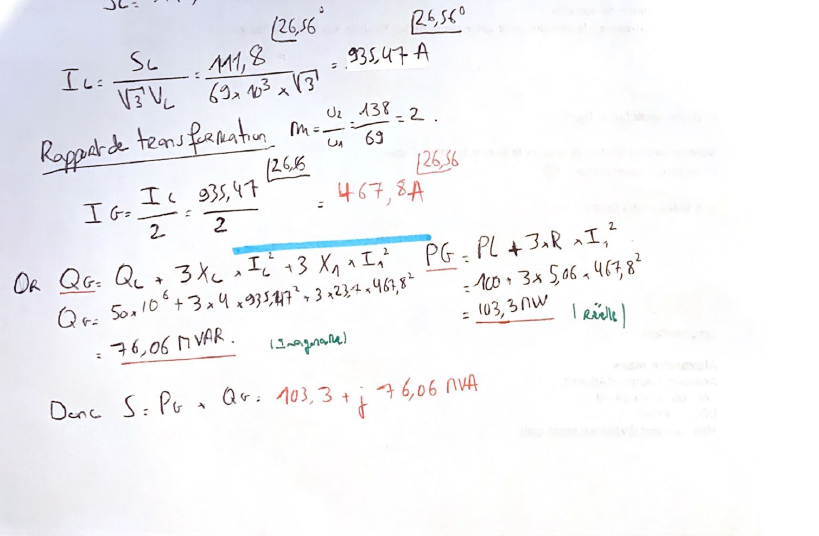 SL=
IL= SL / √3 VL = 111,8 |26,56° / 69 x 10³ x √3 = 935,47 A |26,56°
Rapport de transformation m = U2 / U1 = 138 / 69 = 2.
IG = IL / 2 = 935,47 |26,56 / 2 = 467,8 A |26,56
OR QG = QL + 3 XL x IL² + 3 X1 x I1²
QG = 50 x 10⁶ + 3 x 4 x 935,47² + 3 x 23,7 x 467,8²
= 76,06 MVAR. (Imaginaire)
PG = PL + 3 x R x I1²
= 100 + 3 x 5,06 x 467,8²
= 103,3 MW (Réelle)
Donc S = PG + QG = 103,3 + j 76,06 MVA